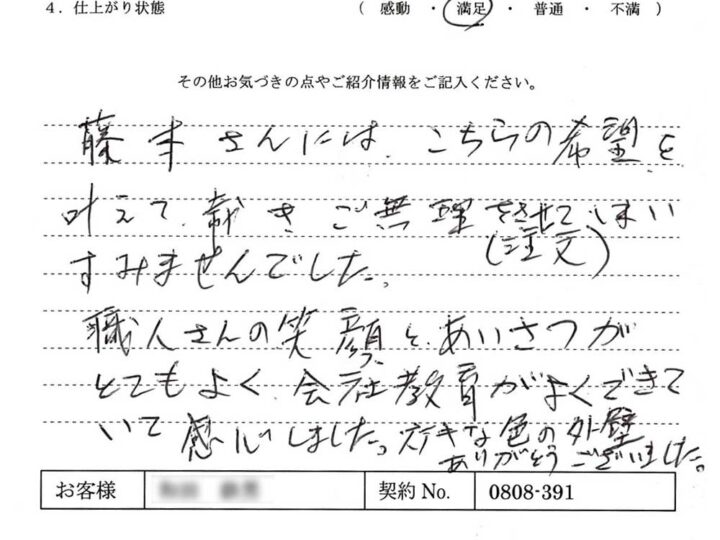 4. 仕上がり状態 ( 感動 ・ 満足 ・ 普通 ・ 不満 )
その他お気づきの点やご紹介情報をご記入ください。
藤本さんには、こちらの希望を
叶えて、戴き ご無理をさせてしまい
(注文)
すみませんでした。
職人さんの笑顔と、あいさつが
とてもよく、会社教育がよくできて
いて 感心しました。ステキな色の外壁
ありがとうございました。
お客様 契約 No. 0808-391